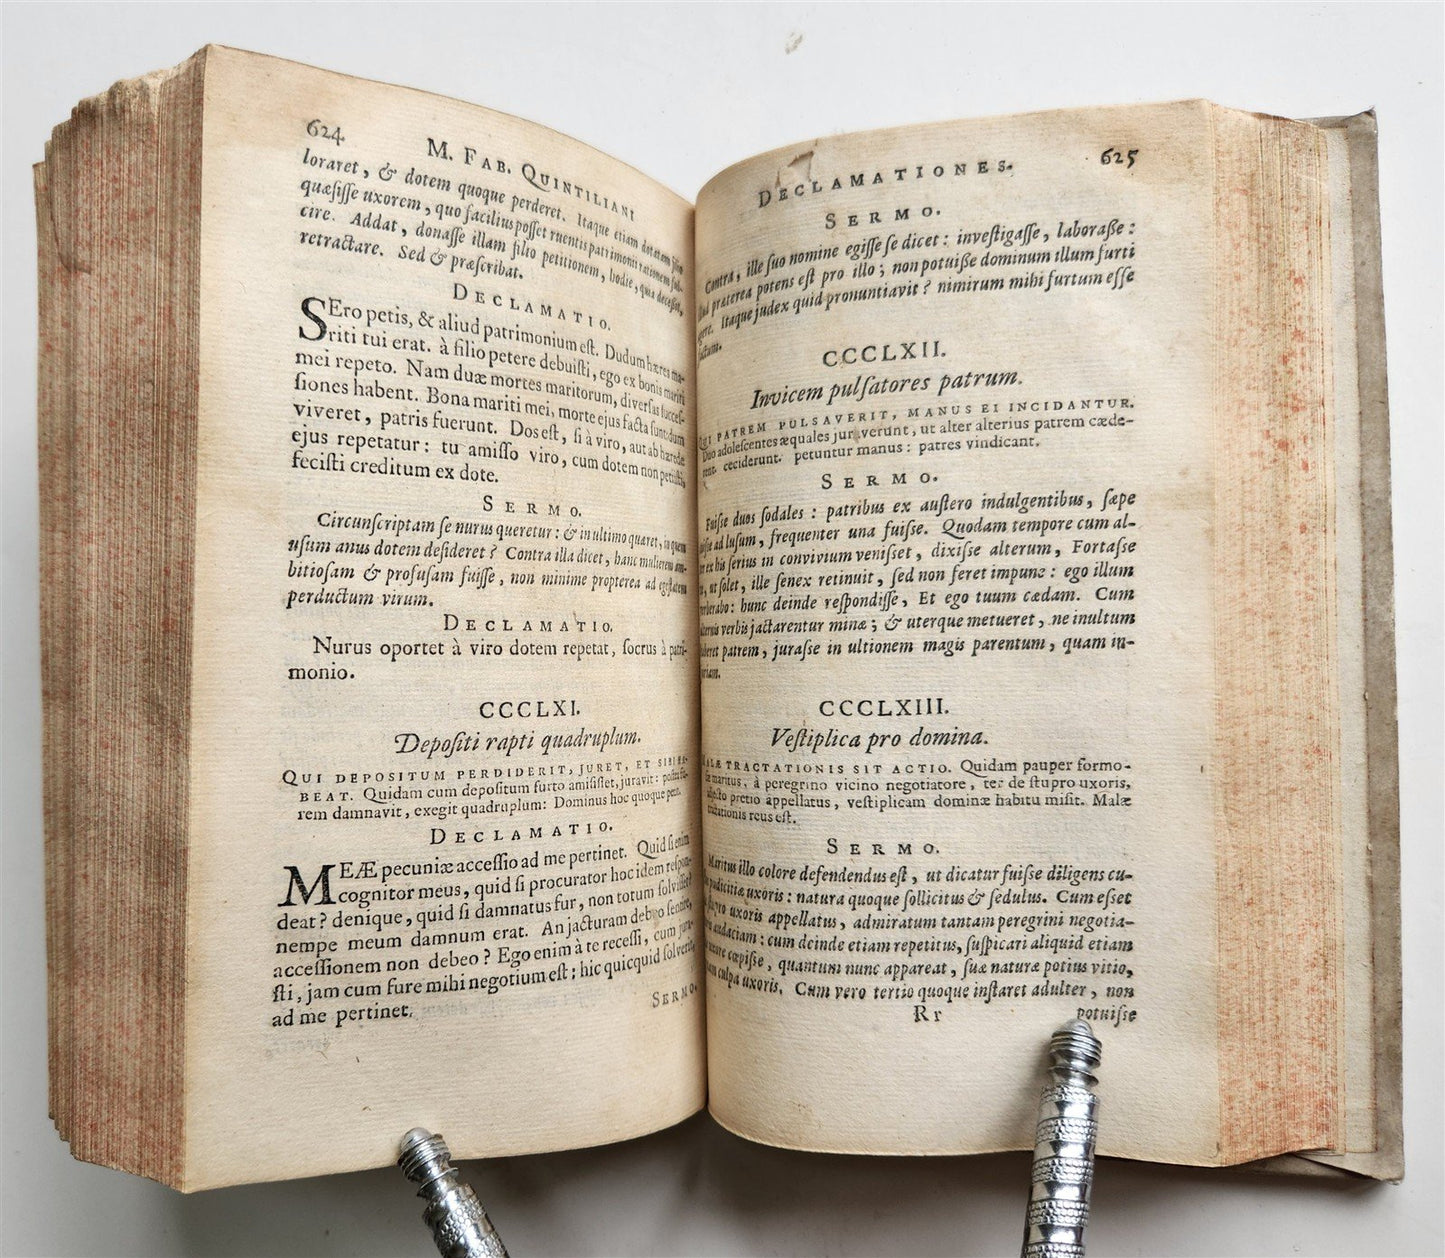 624
M. FAB. QUINTILIANI
loraret, & dotem quoque perderet. Itaque etiam dotatam filio
quæsiſſe uxorem, quo facilius poſſet ruentis patrimonii rationem ful-
cire. Addat, donaſſe illam filio petitionem, hodie, quia deceſſit,
retractare. Sed & præſcribat.
DECLAMATIO.
SEro petis, & aliud patrimonium eſt. Dudum hæres ma-
riti tui erat. à filio petere debuiſti, ego ex bonis mariti
mei repeto. Nam duæ mortes maritorum, diverſas ſucceſ-
ſiones habent. Bona mariti mei, morte ejus facta ſunt: dum
viveret, patris fuerunt. Dos eſt, ſi à viro, aut ab hærede
ejus repetatur: tu amiſſo viro, cum dotem non petiiſti,
feciſti creditum ex dote.
SERMO.
Circunſcriptam ſe nurus queretur: & in ultimo quæret, in quem
uſum anus dotem deſideret? Contra illa dicet, hanc mulierem am-
bitioſam & profuſam fuiſſe, non minime propterea ad egeſtatem
perductum virum.
DECLAMATIO.
Nurus oportet à viro dotem repetat, ſocrus à patri-
monio.
CCCLXI.
Depoſiti rapti quadruplum.
QUI DEPOSITUM PERDIDERIT, JURET, ET SIBI HA-
BEAT. Quidam cum depoſitum furto amiſiſſet, juravit: poſtea fu-
rem damnavit, exegit quadruplum: Dominus hoc quoque petit.
DECLAMATIO.
MEÆ pecuniæ acceſſio ad me pertinet. Quid ſi enim
cognitor meus, quid ſi procurator hoc idem reſpon-
deat? denique, quid ſi damnatus fur, non totum ſolviſſet?
nempe meum damnum erat. An jacturam debeo ſentire,
acceſſionem non debeo? Ego enim à te receſſi, cum jura-
ſti, jam cum fure mihi negotium eſt; hic quicquid ſolverit,
ad me pertinet.
SERMO.
DECLAMATIONES.
625
SERMO.
Contra, ille ſuo nomine egiſſe ſe dicet: inveſtigaſſe, laboraße:
præterea potens eſt pro illo; non potuiße dominum illum furti
Itaque judex quid pronuntiavit? nimirum mihi furtum eſſe
factum.
CCCLXII.
Invicem pulſatores patrum.
QUI PATREM PULSAVERIT, MANUS EI INCIDANTUR.
Duo adoleſcentes æquales juraverunt, ut alter alterius patrem cæde-
rent. ceciderunt. petuntur manus: patres vindicant.
SERMO.
Fuiſſe duos ſodales: patribus ex auſtero indulgentibus, ſæpe
ad luſum, frequenter una fuiſſe. Quodam tempore cum al-
ter ex his ſerius in convivium veniſſet, dixiſſe alterum, Fortaſſe
ut ſolet, ille ſenex retinuit, ſed non feret impune: ego illum
verberabo: hunc deinde reſpondiſſe, Et ego tuum cædam. Cum
alternis verbis jactarentur minæ; & uterque metueret, ne inultum
haberet patrem, juraſſe in ultionem magis parentum, quam in-
juriam.
CCCLXIII.
Veſtiplica pro domina.
MALÆ TRACTATIONIS SIT ACTIO. Quidam pauper formo-
ſæ maritus, à peregrino vicino negotiatore, ter de ſtupro uxoris,
adjecto pretio appellatus, veſtiplicam dominæ habitu miſit. Malæ
tractationis reus eſt.
SERMO.
Maritus illo colore defendendus eſt, ut dicatur fuiſſe diligens cu-
ſtos pudicitiæ uxoris: natura quoque ſollicitus & ſedulus. Cum eſset
de ſtupro uxoris appellatus, admiratum tantam peregrini negotia-
toris audaciam: cum deinde etiam repetitus, ſuſpicari aliquid etiam
de uxore cœpiſse, quantum nunc appareat, ſuæ naturæ potius vitio,
quam culpa uxoris. Cum vero tertio quoque inſtaret adulter, non
Rr
potuiſse